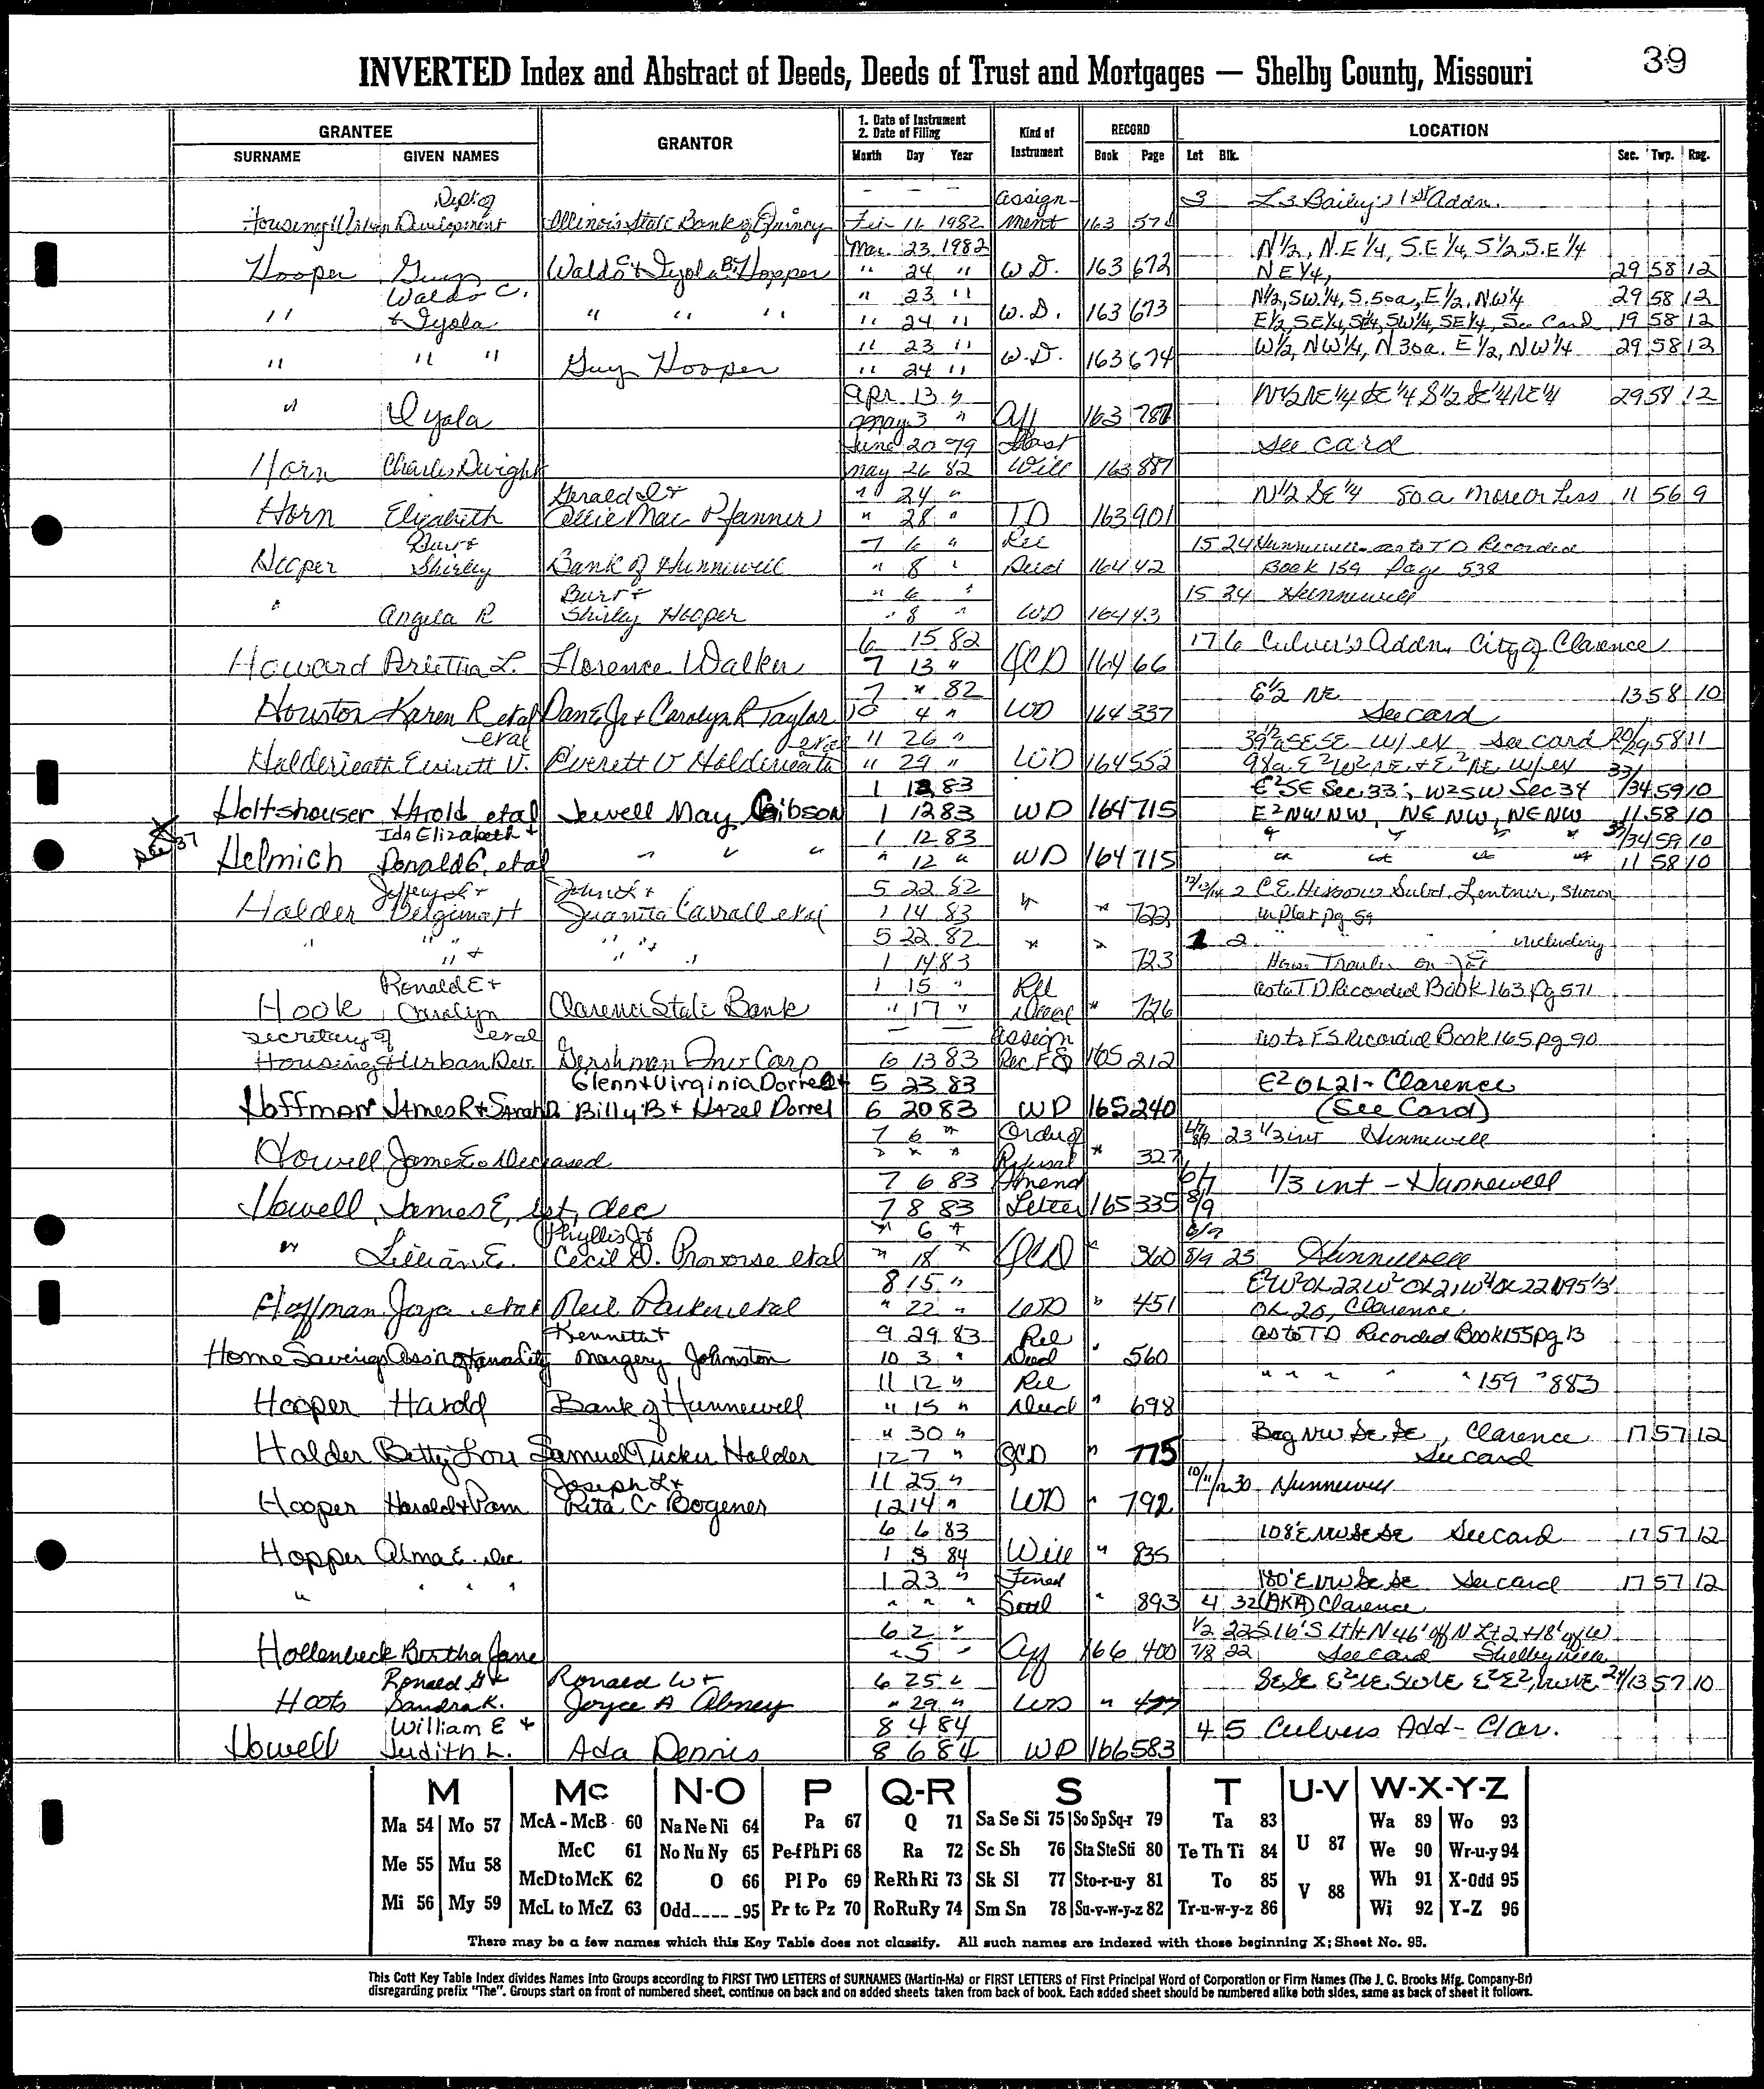 39
INVERTED Index and Abstract of Deeds, Deeds of Trust and Mortgages — Shelby County, Missouri
GRANTEE GRANTOR 1. Date of Instrument 2. Date of Filing Kind of Instrument RECORD LOCATION
SURNAME GIVEN NAMES Month Day Year Book Page Lot Blk. Sec. Twp. Rng.
Dept of — — — Assign- 3 L 3 Bailey's 1st Addn.
Housing & Urban Development Illinois State Bank of Quincy Feb 16 1982 ment 163 571
Mar. 23 1982 N½, N.E¼, S.E¼, S½, S.E¼
Hooper Guy Waldo C & Iyola B. Hopper " 24 " W.D. 163 672 NE¼, 29 58 12
Waldo C. " 23 " N½, SW¼, S. 50a, E½, NW¼ 29 58 12
" & Iyola " " " " 24 " W.D. 163 673 E½, SE¼, SE¼, SW¼, SE¼, See Card 19 58 12
" 23 " W½, NW¼, N 30a. E½, NW¼ 29 58 12
" " " Guy Hooper " 24 " W.D. 163 674
Apr. 13 " N½ NE¼ SE¼ S½ SE¼ NE¼ 29 58 12
" Iyola May 3 " Aff 163 787
June 20 79 Last See card
Horn Charles Dwight May 26 82 Will 163 887
Gerald D & " 24 " N½ SE¼ 80a more or less 11 56 9
Horn Elizabeth Ollie Mae Pfanner " 28 " TD 163 901
Burt & 7 6 " Rel 15 24 Hunnewell as to TD Recorded
Hooper Shirley Bank of Hunnewell " 8 " Deed 164 42 Book 159 Page 538
Burt & " 6 " 15 24 Hunnewell
" Angela R Shirley Hooper " 8 " WD 164 43
6 15 82 17 6 Culver's Addn. City of Clarence
Howard Arietha L. Florence Walker 7 13 " QCD 164 66
7 " 82 E½ NE 13 58 10
Houston Karen R etal Dan E Jr & Carolyn R Taylor 10 4 " WD 164 337 See card
etal etal " 26 " 39½a SE SE w/ ex See card 20/29 58 11
Holderieath Everett V. Everett V Holderieath " 29 " WD 164 552 98a E²W²NE & E²NE w/ex
1 12 83 E²SE Sec 33; W²SW Sec 34 33/34 59 10
Holtshouser Harold etal Jewell May Gibson 1 12 83 WD 164 715 E²NWNW, NE NW, NE NW 11 58 10
See 37 Ida Elizabeth & 1 12 83 " " " " 33/34 59 10
Helmich Donald C. etal " " " " 12 " WD 164 715 " " " " 11 58 10
Jeffery L & John L & 5 22 82 12/13/14 2 C.E. Hissows Subd. Lentner, Shown
Halder Delgima H Juanita Carrall etal 1 14 83 " " 722 in Plat pg 59
" " " " " 5 22 82 " " 1 2 " " including
" & " " 1 14 83 723 House Trailer on
Ronald E & 1 15 " Rel as to TD Recorded Book 163 Pg 571
Hook Carolyn Clarence State Bank " 17 " Deed " 726
Secretary of etal — — Assign as to FS Recorded Book 165 pg 90
Housing & Urban Dev. Gershman Inv Corp 6 13 83 Rec FS 165 212
Glenn & Virginia Dorrell & 5 23 83 E² OL21 - Clarence
Hoffman James R & Sarah D. Billy B & Hazel Dorrel 6 20 83 WD 165 240 (See Card)
7 6 " Order of 6/7 8/9 23 1/3 int Hunnewell
Howell James E. Deceased " " " Refusal " 327
7 6 83 Amend 6/7 1/3 int - Hunnewell
Howell, James E, est, dec 7 8 83 Letter 165 335 8/9
Phyllis J & " 6 " 6/7
" Lillian E. Cecil D. Provorse etal " 18 " QCD " 360 8/9 23 Hunnewell
8 15 " E²W²OL22 W² OL21, W²OL22 N 95⅓'
Hoffman Joya etal Neil Parker etal " 22 " WD " 451 OL 20, Clarence
Kenneth & 9 29 83 Rel as to TD Recorded Book 155 pg 13
Home Savings Assn of Kansas City Margery Johnston 10 3 " Deed " 560
11 12 " Rel " " " " " 159 " 883
Hooper Harold Bank of Hunnewell " 15 " Deed " 698
" 30 " Beg NW SE SE, Clarence 17 57 12
Halder Betty Lou Samuel Tucker Halder 12 7 " QCD " 775 See card
Joseph L & 11 25 " 10/11/12 30 Hunnewell
Hooper Harold & Pam Rita C. Bogener 12 14 " WD " 792
6 6 83 108'E NW SE SE See card 17 57 12
Hopper Alma E. Dec 1 3 84 Will " 835
1 23 " Final 180'E NW SE SE See card 17 57 12
" " " " " " " Settl " 893 4 32 (AKA) Clarence
6 2 " 1/2 22 S 16' S Lt H N 46' off N Lt 2 & 18' off W
Hollenbeck Bertha Jane " 5 " Aff 166 400 7/8 22 See card Shelbyville
Ronald G & Ronald W & 6 25 " SESE E²NE SWNE E²E², NWNE 24/13 57 10
Hoots Sandra K. Joyce A Abney " 29 " WD " 477
William E & 8 4 84 4 5 Culvers Add - Clar.
Howell Judith L. Ada Dennis 8 6 84 WD 166 583
M Mc N-O P Q-R S T U-V W-X-Y-Z
Ma 54 Mo 57 McA - McB 60 Na Ne Ni 64 Pa 67 Q 71 Sa Se Si 75 So Sp Sq-r 79 Ta 83 Wa 89 Wo 93
McC 61 No Nu Ny 65 Pe-f Ph Pi 68 Ra 72 Sc Sh 76 Sta Ste Sti 80 Te Th Ti 84 U 87 We 90 Wr-u-y 94
Me 55 Mu 58 McD to McK 62 O 66 Pl Po 69 Re Rh Ri 73 Sk Sl 77 Sto-r-u-y 81 To 85 V 88 Wh 91 X-Odd 95
Mi 56 My 59 McL to McZ 63 Odd____-95 Pr to Pz 70 Ro Ru Ry 74 Sm Sn 78 Su-v-w-y-z 82 Tr-u-w-y-z 86 Wi 92 Y-Z 96
There may be a few names which this Key Table does not classify. All such names are indexed with those beginning X; Sheet No. 95.
This Cott Key Table Index divides Names into Groups according to FIRST TWO LETTERS of SURNAMES (Martin-Ma) or FIRST LETTERS of First Principal Word of Corporation or Firm Names (The J. C. Brooks Mfg. Company-Br)
disregarding prefix "The". Groups start on front of numbered sheet, continue on back and on added sheets taken from back of book. Each added sheet should be numbered alike both sides, same as back of sheet it follows.